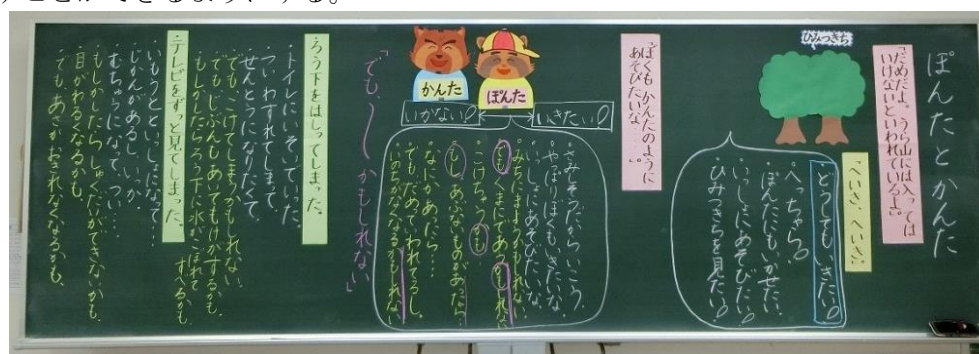 すことができるようにする。
ぽんたとかんた
「だめだよ。うら山には入っては
いけないといわれているよ。」
「へいき、へいき。」
ひみつきち
・どうしてもいきたい!
・へっちゃら。
・ぽんたにもいかせたい。
・いっしょにあそびたい!
・ひみつきちを見たい!
「ぼくも かんたのように
あそびたいな…。」
ぽんた
かんた
いきたい!
いかない!
・やっぱりぼくも、いきたいな。
・いっしょにあそびたいな。
・みちにまようかもしれない
・でもくまにであうかもしれない
・こけちゃうかも
・もし、あぶないものがあたら…
・なにかあったら…
・でもだめっていわれてるし。
・いのちがなくなるかもしれない
「でも、〜かもしれない」
・ろう下をはしってしまった。
・トイレにいそいでいた
・ついわすれてしまって、
・せんとうになりたくて、
・でも、こけてしまうかもしれない。
・でも、じぶんもあいてもけがするかも
・もしかしたらろう下に水がこぼれて
すべるかも
・テレビをずっと見てしまった。
・いもうとといっしょになって…
・じかんがあるし、いいか。
・むちゅうになっていて、つい…
・もしかしたら、しゅくだいができないかも
・目がわるくなるかも。
・でも、あさがおきれなくなるかも。